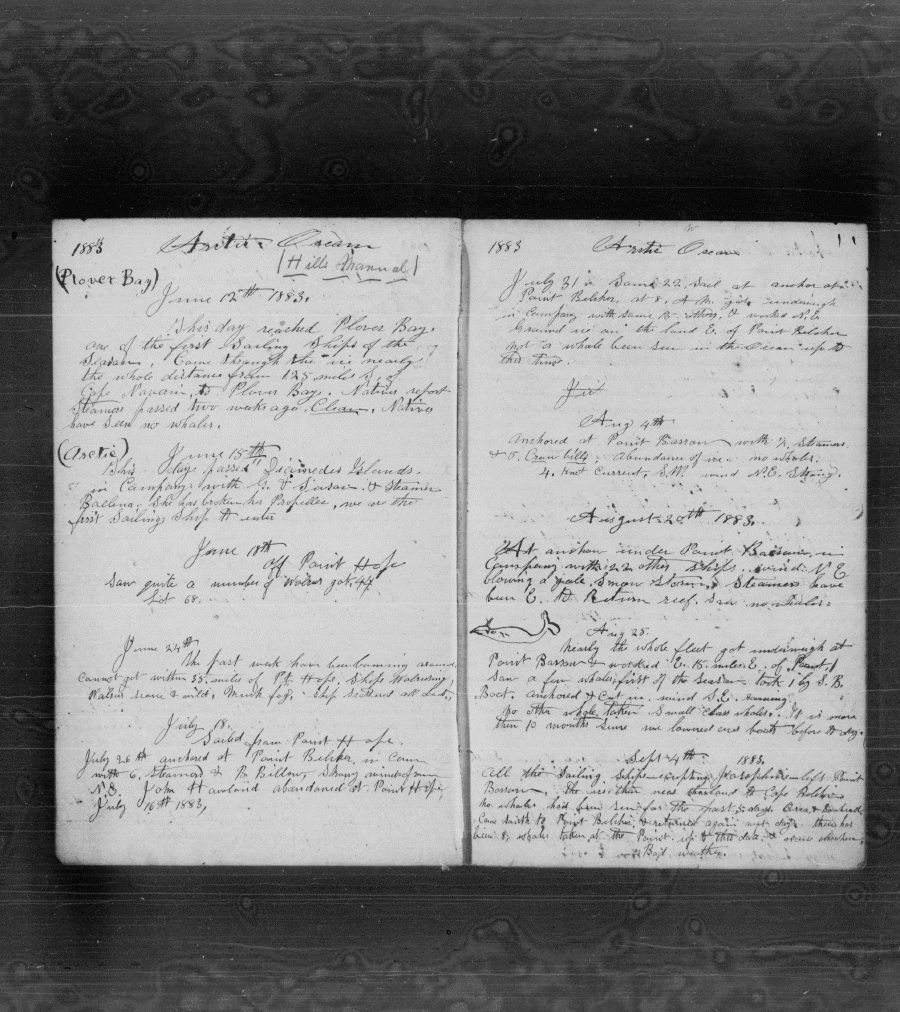 1883 Arctic Ocean
(Hills Manual)
(Plover Bay)
June 12th 1883.
This day reached Plover Bay.
one of the first Sailing Ships of the
Season. Came through the ice nearly
the whole distance from 125 miles S. of
Cape Navarin, to Plover Bay. Natives report
Steamers passed two weeks ago. Clear. Natives
have seen no whales.
(Arctic) June 15th
This day passed Diomedes Islands.
in Company with & Steamer
Balena. She has broken her Propeller, we are the
first Sailing Ship to enter
June 18th
Off Point Hope
Saw quite a number of Walrus got 47
Lat 68.
June 24th
The past week have been
Cannot get within 35 miles of Pt. Hope, Ships Walrusing,
Walrus scarce & wild, Much fog,
July 18.
Sailed from Point Hope.
July 26th anchored at Point Belcher, in Com
with 6, Steamers & Strong wind from
N.E. John Howland abandoned at Point Hope
July 16th 1883,
1883 Arctic Ocean 11
July 31 Some 22 Sail at anchor at
Point Belcher, at 8. A.M. got underweigh
in Company with some 15 others, & worked N.E.
Ground ice on the land E. of Point Belcher
not a whale been seen in the Ocean up to
this time.
Aug 4th
Anchored at Point Barrow with Steamers
& 5. Crow bills. Abundance of ice no whales.
4. Knot Current, S.W. wind N.E. Strong.
August 20th 1883.
At anchor under Point Barrow, in
Company with 22 other Ships. wind N.E
blowing a gale. Snow Storms, Steamers have
been E. to Return reef. Saw no whales.
Aug 25.
Nearly the whole fleet got underweigh at
Point Barrow & worked E. 15 miles E. of Point,
Saw a few whales first of the season. took 1 by S. B.
Boat. anchored & Cut in. wind S.E.
No other whale taken Small class whales. It is more
then 10 months since we lowered our boats before to day.
Sept 4th 1883.
All the Sailing Ships excepting Josephine left Point
Barrow, the weather near to Cape Belcher
no whales had been seen for the past 5 days.
Came South to Point Belcher, & returned again next day. there has
been 8, whales taken at the Point, up to this date. & scarce elsewhere,
Bad weather.